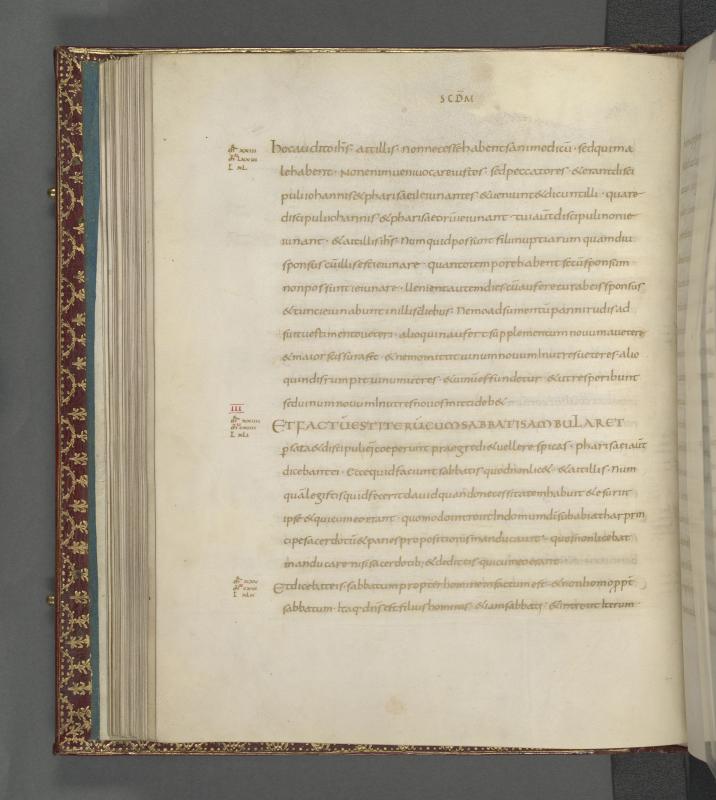 SCDM
Hocauditoihs· aitillis· nonnecessehabentsanimedicu· sedquima
lehabent· Nonenimueniuocareiustos· sedpeccatores· &erantdisci
puliiohannis&pharisaeiieiunantes· &ueniunt&dicuntilli· quare
discipuliiohannis·&pharisaeoruieiunant· tuiautdiscipulinonie
iunant· &aitillisihs· Numquidpossuntfiliinuptiarum quamdiu
sponsus cuillisestieiunare· quantotemporehabent secusponsum
nonpossuntieiunare· Uenientautemdies cuauferetur abeissponsus
&tuncieiunabunt inillisdiebus· Nemoadsumentupannirudisad
suituestimentoueteri· alioquinaufert supplementum nouumauetere
&maior scissurafit· &nemomittit uinumnouumInutresueteres· alio
quindisrumpit uinumutres· &uinueffundetur· &utresperibunt
seduinumnouumInutresnouosmittideb&
III
ETFACTUESTITERUCUMSABBATISAMBULARET
psata&discipulieiuscoeperunt praegredi&uellere spicas· pharisaeiaut
dicebantei· Eccequidfaciunt sabbatis quodnonlic&· &aitillis· Num
qualegistisquidfecerit dauidquandonecessitatemhabuit &esuriit
ipse&quicumeoerant· quomodointroiitIndomumdisubabiatharprin
cipesacerdotu&panes propositionis manducauit· quosnonlicebat
manducare nisi sacerdotib; &dediteis quicumeoerant
Etdicebateis· sabbatum propter hominemfactumest· &nonhomoppt
sabbatum· Itaq; dns est filius hominis· &iamsabbati· &introiit Iterum